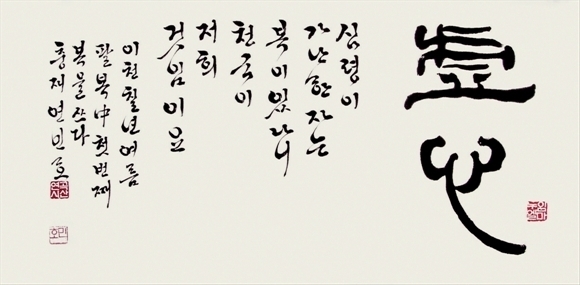 虛心
심령이
가난한 자는
복이 있나니
천국이
저희
것임이요
이천칠년 여름
팔복中 첫번째
복을 쓰다
충재 연민호